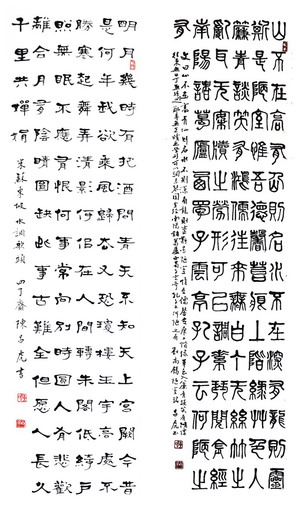 山不在高有仙則名水不在深有龍則靈
斯是陋室惟吾德馨苔痕上階綠艸色入
簾青談笑有鴻儒往來無白丁可以調素
琴閱金經無絲竹之亂耳無案牘之勞形
南陽諸葛廬西蜀子雲亭孔子云何陋之
有
明月幾時有把酒問青天不知天上宮闕今昔
是何年我欲乘風歸去又恐瓊樓玉宇高處不
勝寒起舞弄清影何似在人間轉朱閣低綺戶
照無眠不應有恨何事常向別時圓人有悲歡
離合月有陰晴圓缺此事古難全但愿人長久
千里共嬋娟
宋蘇東坡水調歌頭 陳昌虎書